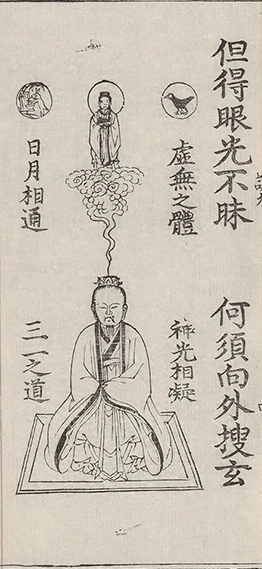 但得眼光不昧
何須向外搜玄
虛無之體
神光相凝
日月相通
三一之道